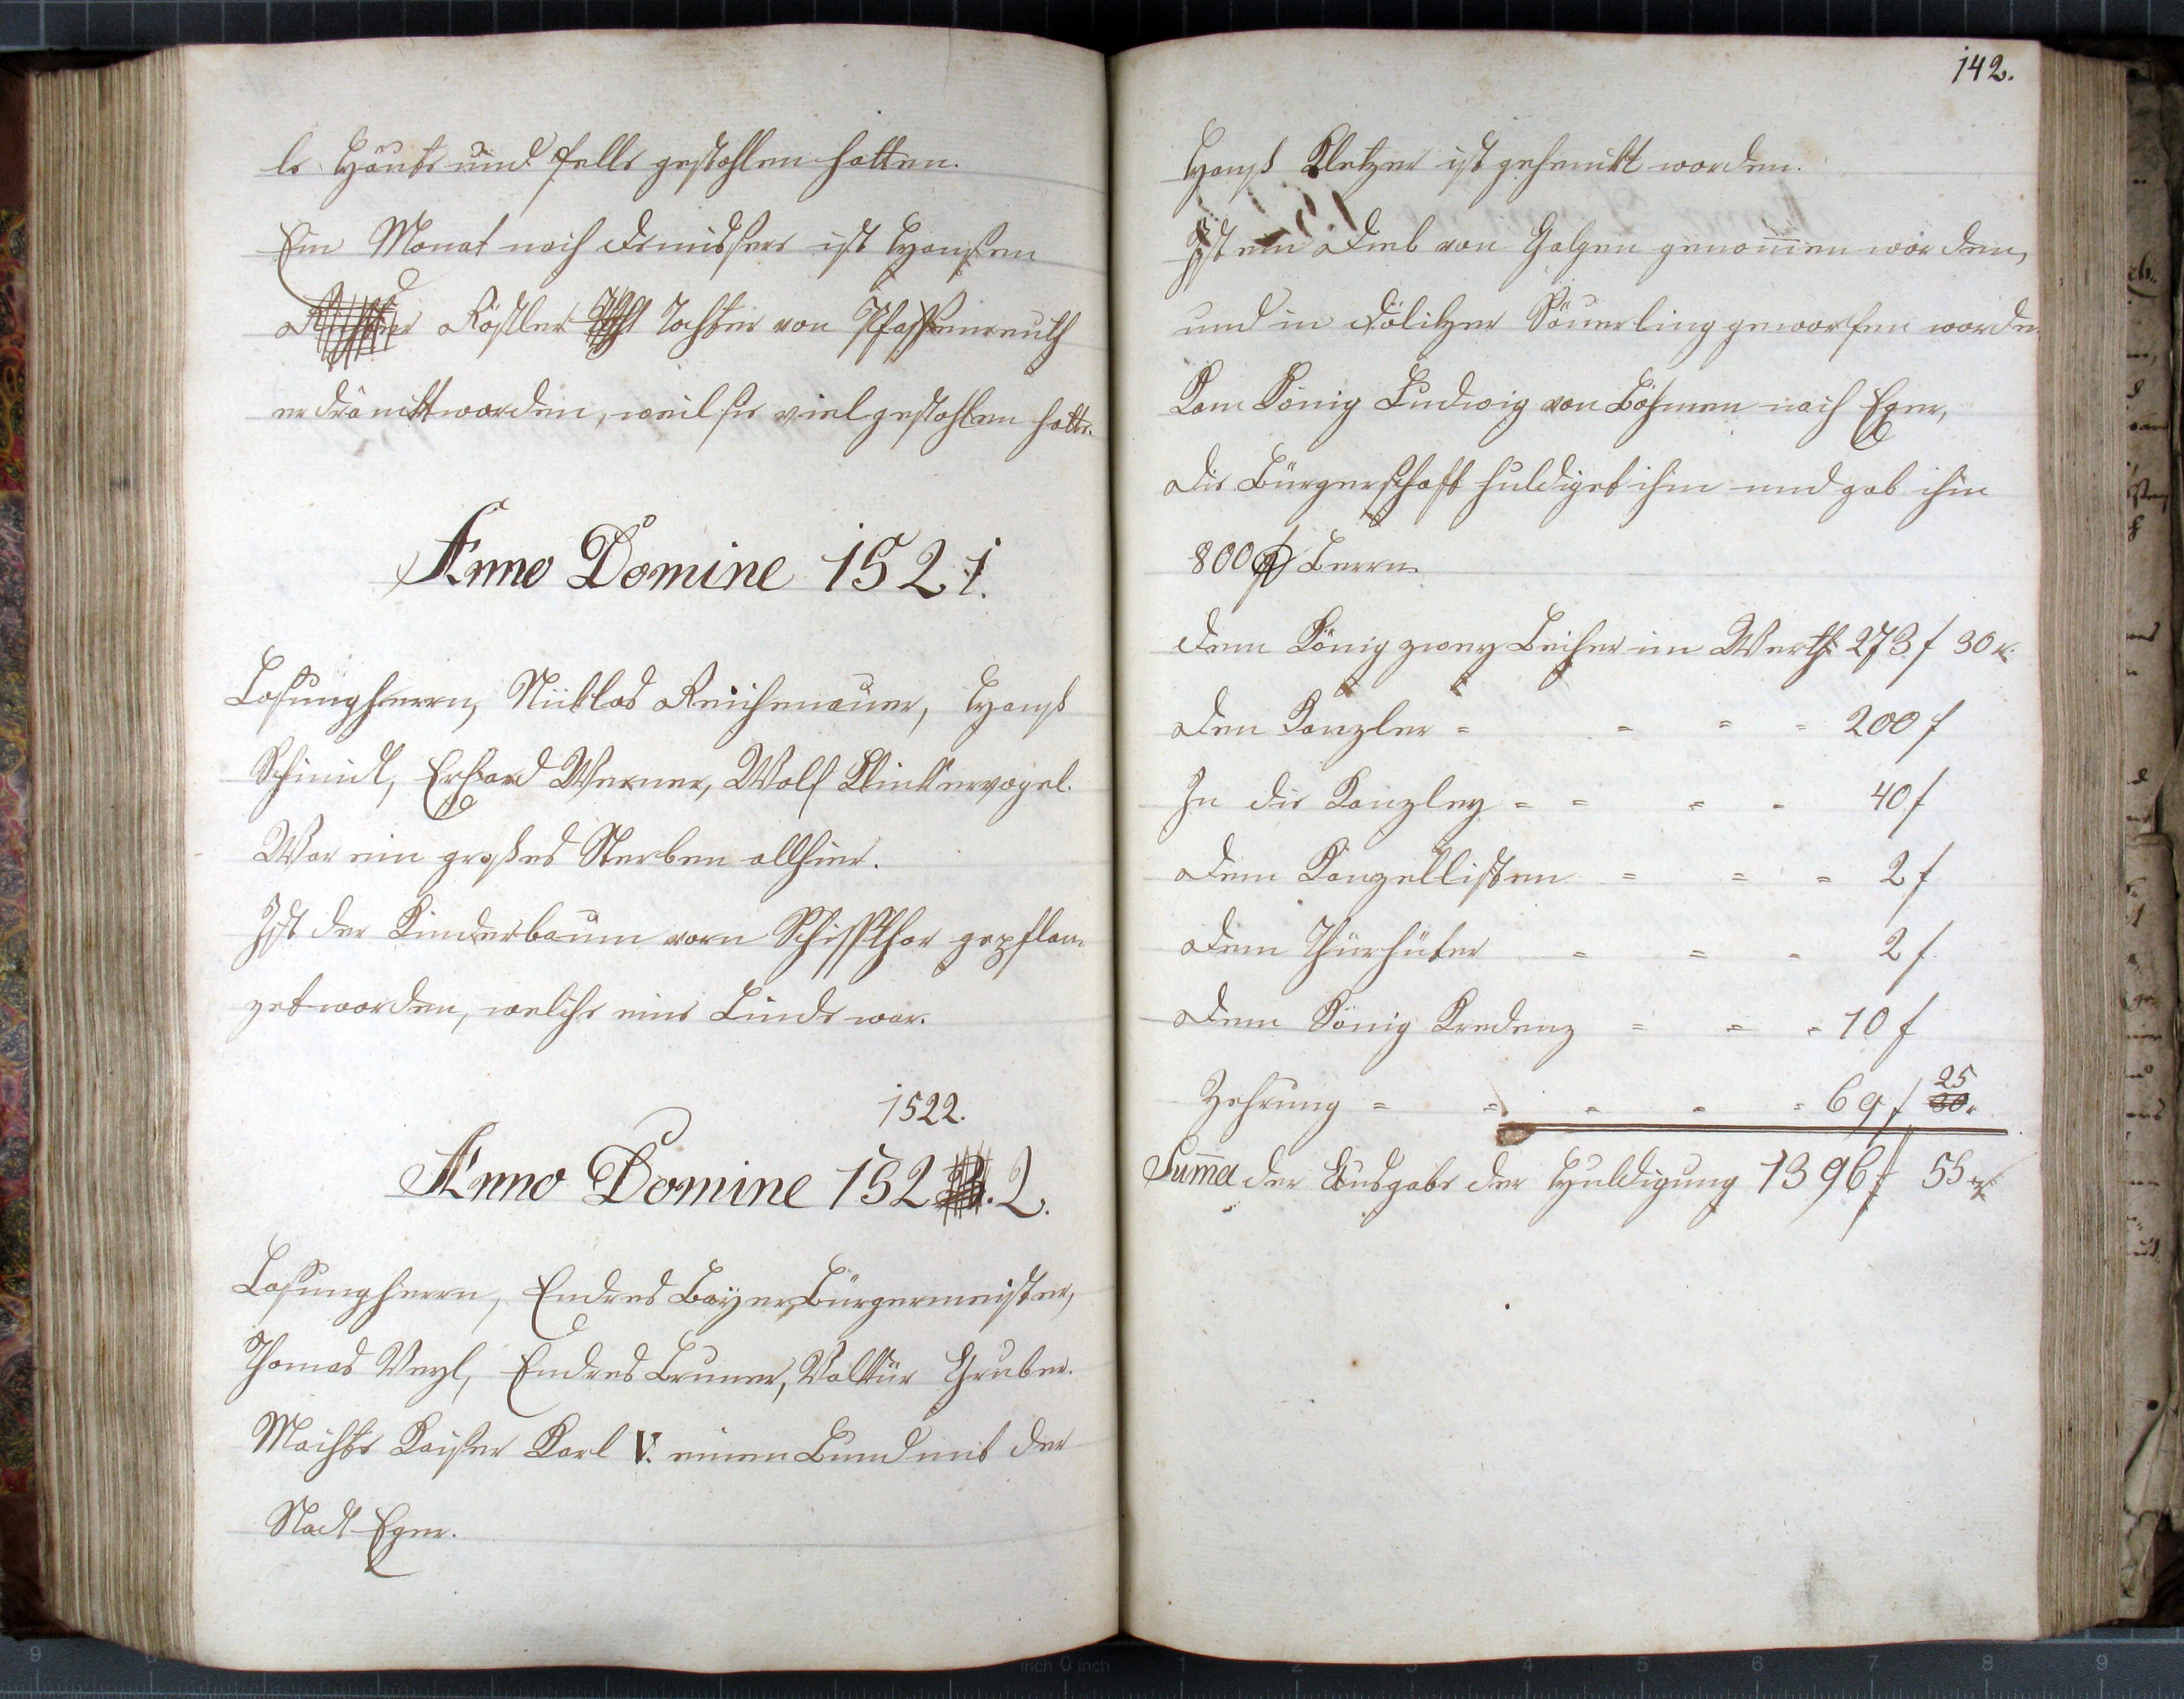 le Häute und Felle gestohlen hatten.
Ein Monat nach demselben ist Hansen
Röstler Tochter von Pfaffenreuth
erdränckt worden, weil sie viel gestohlen hatte.
Anno Domine 1521.
Losungherrn, Niklas Reichenauer, Hanß
Schmidt, Erhard Werner, Wolf Klinkervogel.
War ein großes Sterben allhier.
Ist der Kinderbaum vorn Schiffthor gepflan-
zet worden, welche eine Linde war.
1522.
Anno Domine 152 2.
Losungherrn, Endres Bayer Bürgermeister,
Thomas Veyl, Endres Bruner, Gruber.
Machte Kaiser Karl V. einen Bund mit der
Stadt Eger.
142.
Hanß Kletzer ist gehenkt worden.
Ist ein Dieb von Galgen genommen worden,
und in Döliizer Säuerling geworfen worden.
Kam König Ludwig von Böhmen nach Eger,
die Bürgerschaft huldiget ihm und gab ihm
800 f
dem König zwey Becher im Werth 273 f 30 x.
dem Kanzler = = = = 200 f
In die Kanzley = = = = 40 f
dem Kanzellisten = = = 2 f
dem Thürhüter = = = 2 f
dem König Kredenz = = = 10 f
Zehrung = = = = = 69 f 25 30 x
Suma der Ausgabe der Huldigung 1396 f 55 x